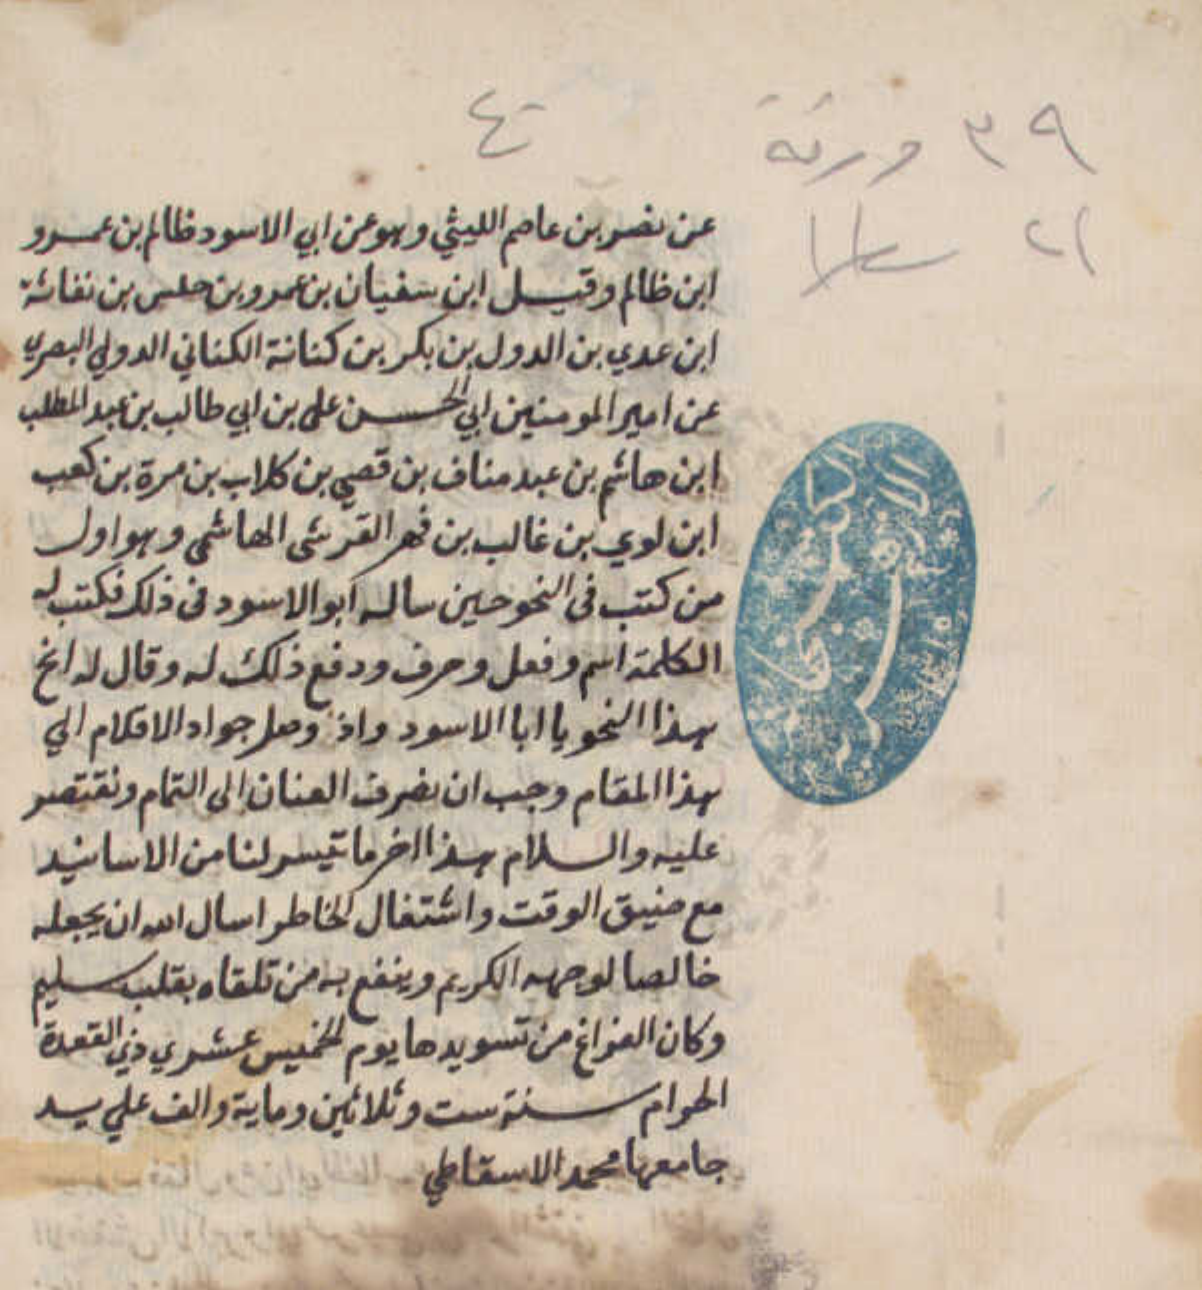 ٣٩ ورقة
٤٠
٢١ سطرا
عن نصر بن عاصم الليثي وهو عن ابي الاسود ظالم بن عمرو
ابن ظالم وقيل ابن سفيان بن عمرو بن حلس بن نفاثة
ابن عدي بن الدول بن بكر بن كنانة الكناني الدولي البصري
عن امير المومنين ابي الحسن علي بن ابي طالب بن عبد المطلب
ابن هاشم بن عبد مناف بن قصي بن كلاب بن مرة بن كعب
ابن لوي بن غالب بن فهر القرشي الهاشمي وهو اول
من كتب في النحو حين ساله ابو الاسود في ذلك فكتب له
الكلمة اسم وفعل وحرف ودفع ذلك له وقال له انح
بهذا النحو يا ابا الاسود واذ وصل جواد الاقلام الي
هذا المقام وجب ان نصرف العنان الى التمام ونقتصر
عليه والسلام هذا اخر ما تيسر لنا من الاسانيد
مع ضيق الوقت واشتغال الخاطر اسال الله ان يجعله
خالصا لوجهه الكريم وينفع به من تلقاه بقلب سليم
وكان الفراغ من تسويدها يوم الخميس عشري ذي القعدة
الحرام سنة ست وثلاثين وماية والف علي يد
جامعها محمد الاسقاطي